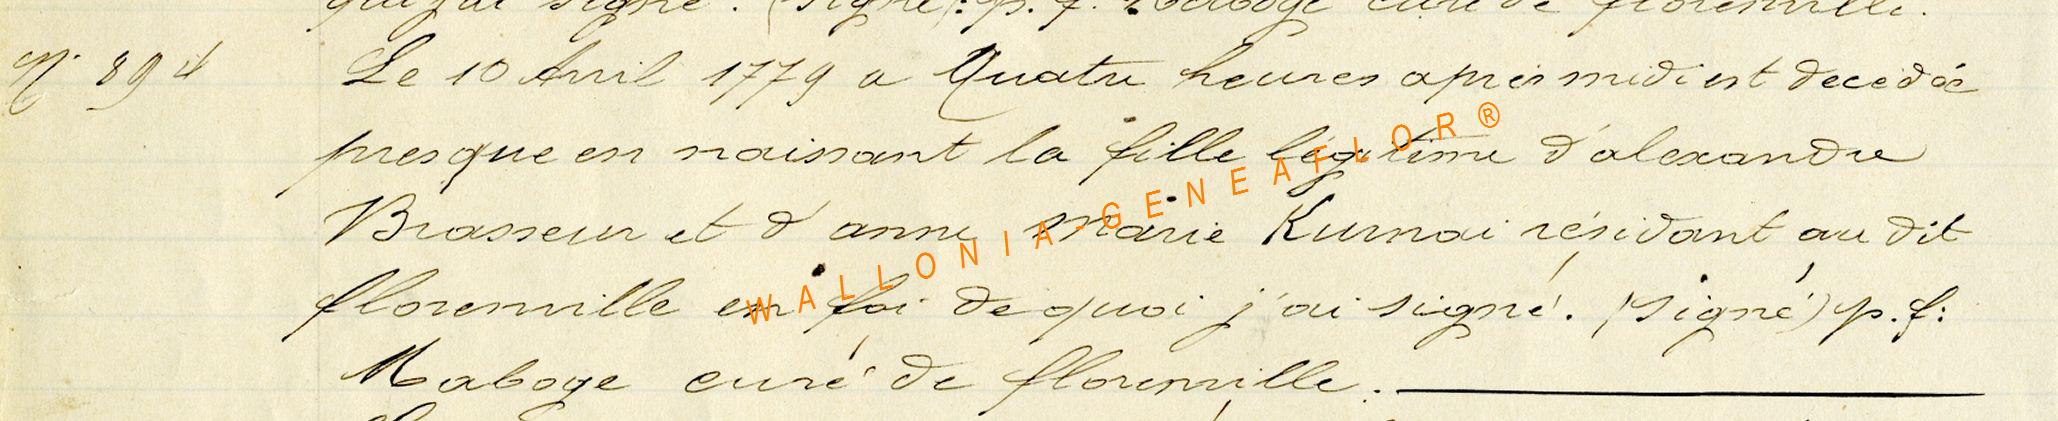 qui j'ai signé. (signé): p. f. Maboge curé de florenville.
N° 894 Le 10 Avril 1779 a Quatre heures après midi est decedée
presque en naissant la fille légitime d'alexandre
Brasseur et d'anne Marie Kurnai résidant au dit
florenville en foi de quoi j'ai signé. (signé) p. f:
Maboge curé de florenville.
WALLONIA-GENEAFLOR®